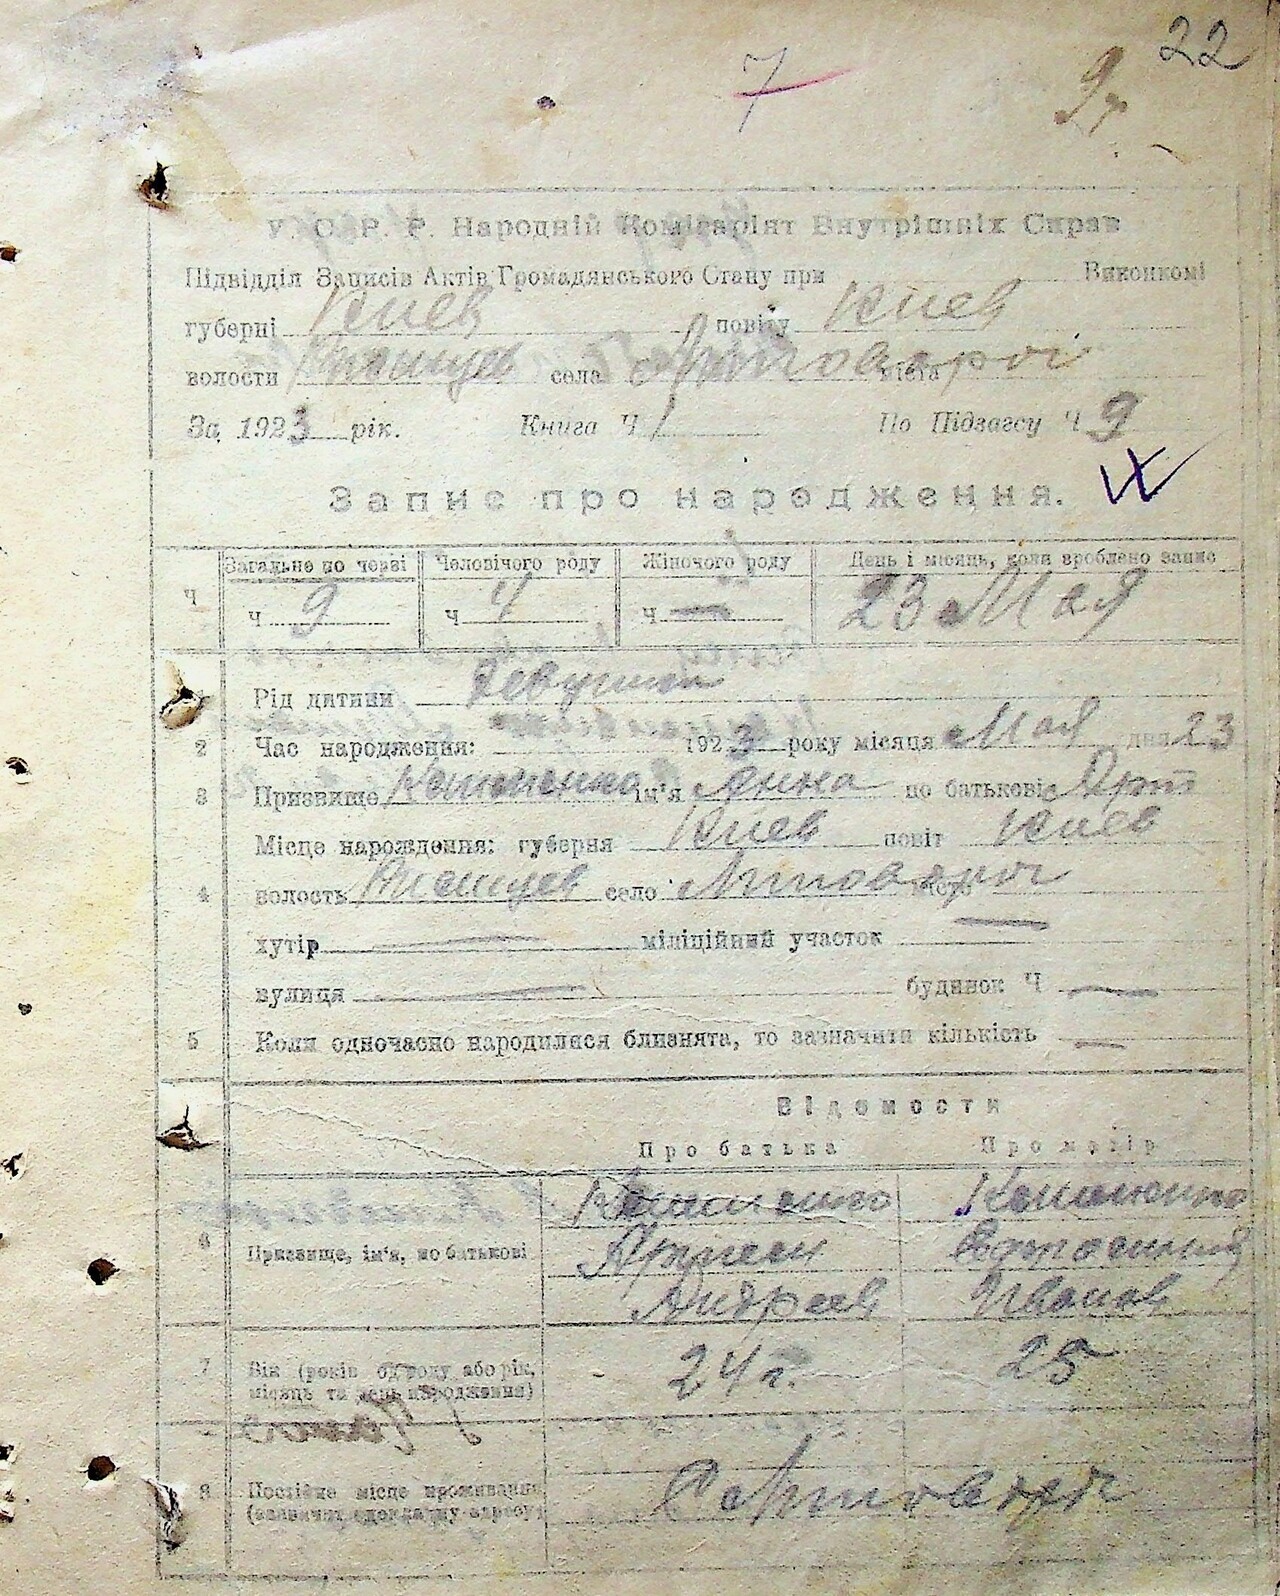 22
7
9
У. С. Р. Р. Народній Комісаріят Внутрішніх Справ
Підвідділ Записів Актів Громадянського Стану при Виконкомі
губерні Киев повіту Киев
волости села міста
За 1923 рік. Книга Ч 1 По Підзагсу Ч 9
Запис про народження.
Загальне по черзі Человічого роду Жіночого роду День і місяць, коли зроблено запис
Ч Ч 9 Ч 4 Ч — 23 Мая
Рід дитини
2 Час народження: 1923 року місяця Мая дня 23
3 Призвище ім'я Анна по батькові Арт
Місце народження: губерня Киев повіт Киев
4 волость село місто
хутір — міліційний участок —
вулиця — будинок Ч —
5 Коли одночасно народилися близнята, то зазначити кількість —
Відомости
Про батька Про матір
6 Призвище, ім'я, по батькові
Андреев Иванов
7 Вік (років од роду або рік, місяць та день народження) 24 г. 25
8 Постійне місце проживання